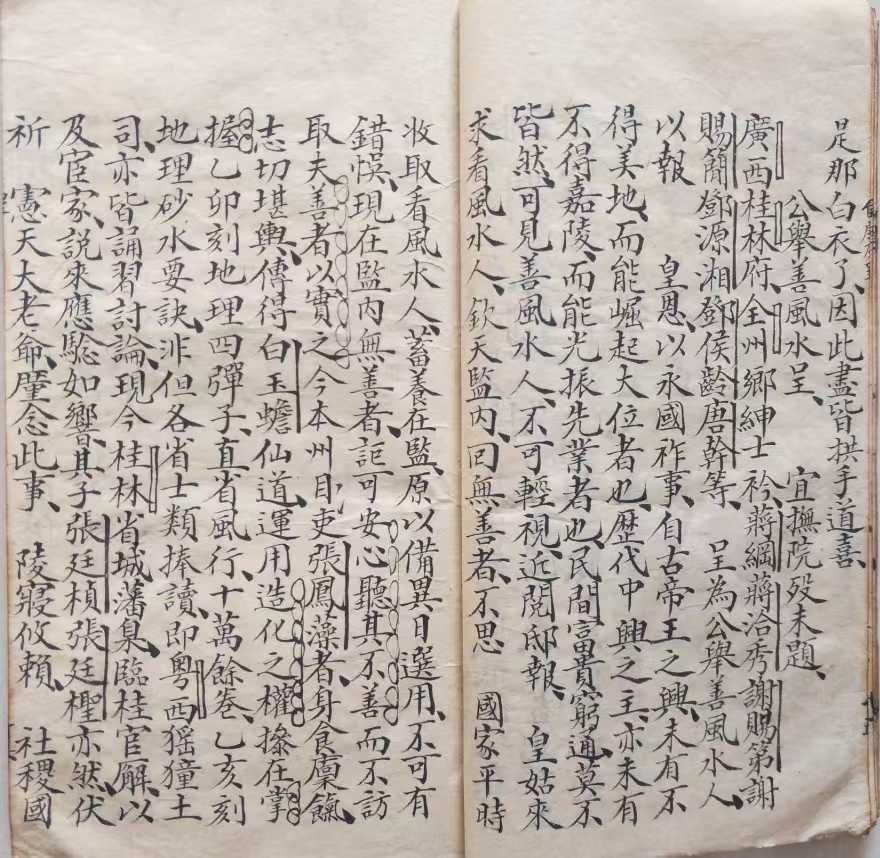 是那白衣了因此盡皆拱手道喜
公舉善風水呈　宜撫院歿未題
廣西桂林府全州鄉紳士衿蔣綱蔣洽秀謝賜第謝
賜簡鄧源湘鄧侯齡唐幹等　呈為公舉善風水人
以報　皇恩以永國祚事自古帝王之興未有不
得美地而能崛起大位者也歷代中興之主亦未有
不得嘉陵而能光振先業者也民間富貴窮通莫不
皆然可見善風水人不可輕視近閱邸報　皇姑來
求看風水人欽天監內回無善者不思　國家平時
收取看風水人蓄養在監原以備異日選用不可有
錯悞現在監內無善者詎可安心聽其不善而不訪
取夫善者以實之今本州目吏張鳳藻者身食廩餼
志切堪輿傳得白玉蟾仙道運用造化之權摻在掌
握乙卯刻地理四彈子直省風行十萬餘卷乙亥刻
地理砂水要訣非但各省士類捧讀即粵西猺獞土
司亦皆誦習討論現今桂林省城藩臬臨桂官解以
及宦家說來應驗如響其子張廷楨張廷檉亦然伏
祈　憲天大老爺廑念此事　陵寢攸賴　社稷國